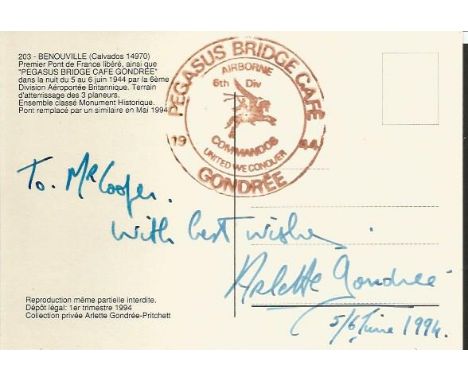 203 - BENOUVILLE (Calvados 14970)
Premier Pont de France libéré, ainsi que
"PEGASUS BRIDGE CAFE GONDRÉE"
dans la nuit du 5 au 6 juin 1944 par la 6ème
Division Aéroportée Britannique. Terrain
d'atterrissage des 3 planeurs.
Ensemble classé Monument Historique.
Pont remplacé par un similaire en Mai 1994.
PEGASUS BRIDGE CAFÉ
AIRBORNE
6th Div
19 44
COMMANDOS
UNITED WE CONQUER
GONDRÉE
To. Mr Cooper.
With best wishes
Arlette Gondrée
5/6 June 1994.
Reproduction même partielle interdite.
Dépôt légal: 1er trimestre 1994
Collection privée Arlette Gondrée-Pritchett